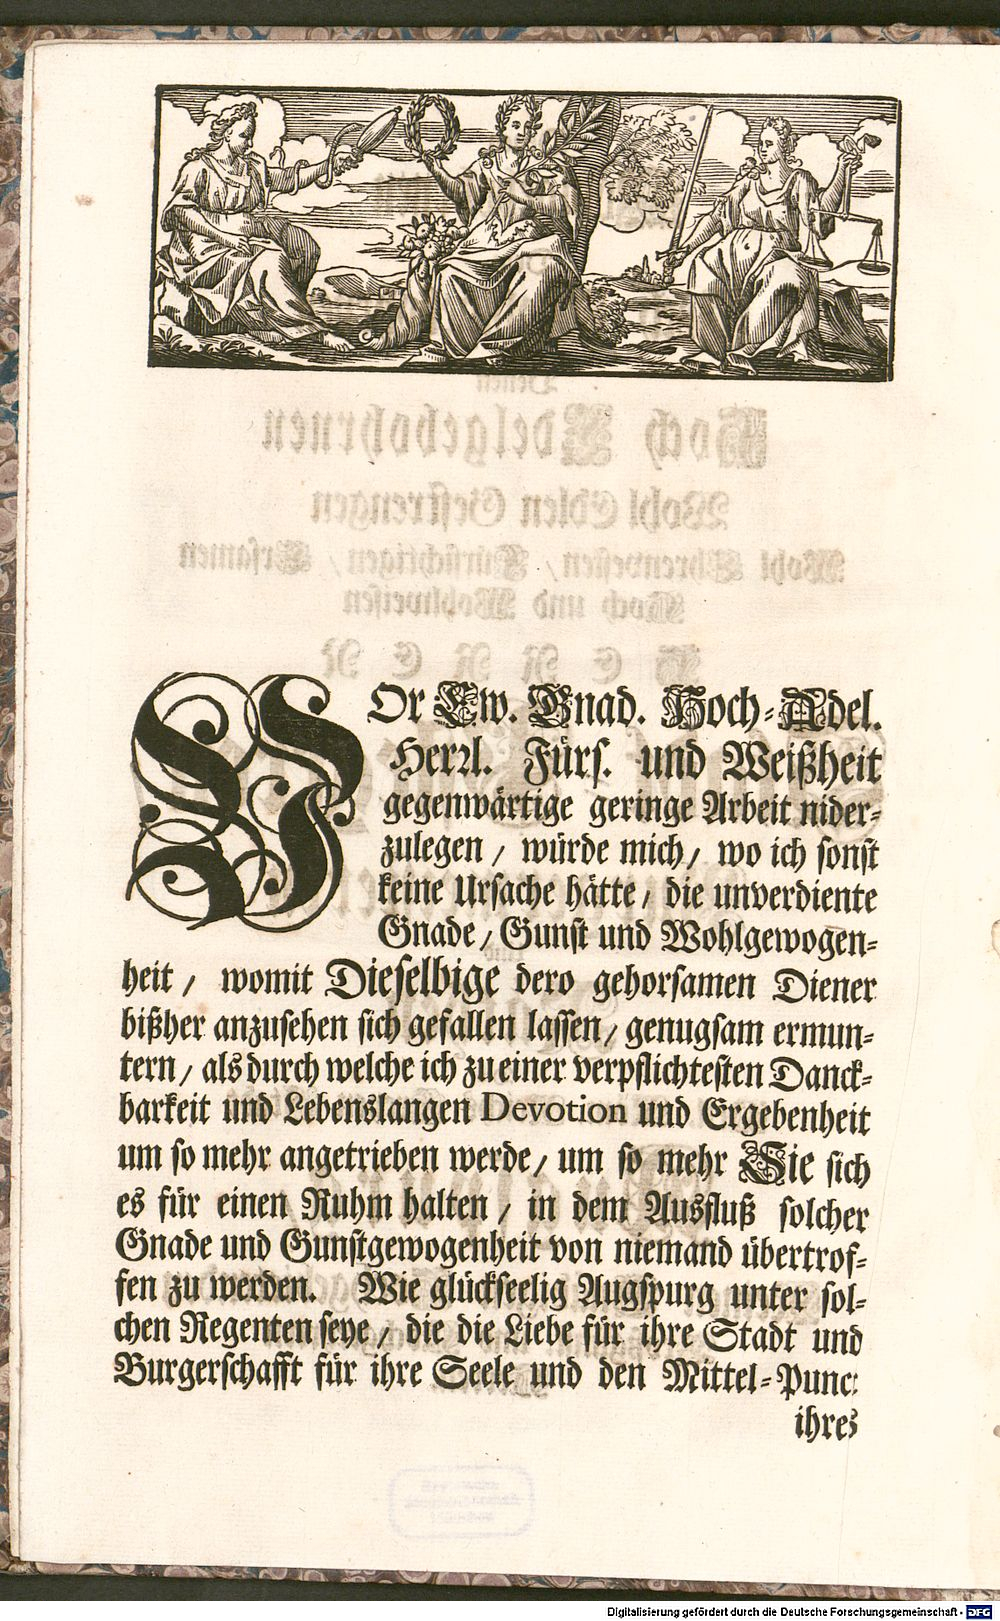 VOr Ew. Gnad. Hoch-Adel.
Herrl. Fürs. und Weißheit
gegenwärtige geringe Arbeit nider-
zulegen / würde mich / wo ich sonst
keine Ursache hätte / die unverdiente
Gnade / Gunst und Wohlgewogen-
heit / womit Dieselbige dero gehorsamen Diener
bißher anzusehen sich gefallen lassen / genugsam ermun-
tern / als durch welche ich zu einer verpflichtesten Danck-
barkeit und Lebenslangen Devotion und Ergebenheit
um so mehr angetrieben werde / um so mehr Sie sich
es für einen Ruhm halten / in dem Ausfluß solcher
Gnade und Gunstgewogenheit von niemand übertrof-
fen zu werden. Wie glückseelig Augspurg unter sol-
chen Regenten seye / die die Liebe für ihre Stadt und
Burgerschafft für ihre Seele und den Mittel-Punct
ihres
Digitalisierung gefördert durch die Deutsche Forschungsgemeinschaft - DFG